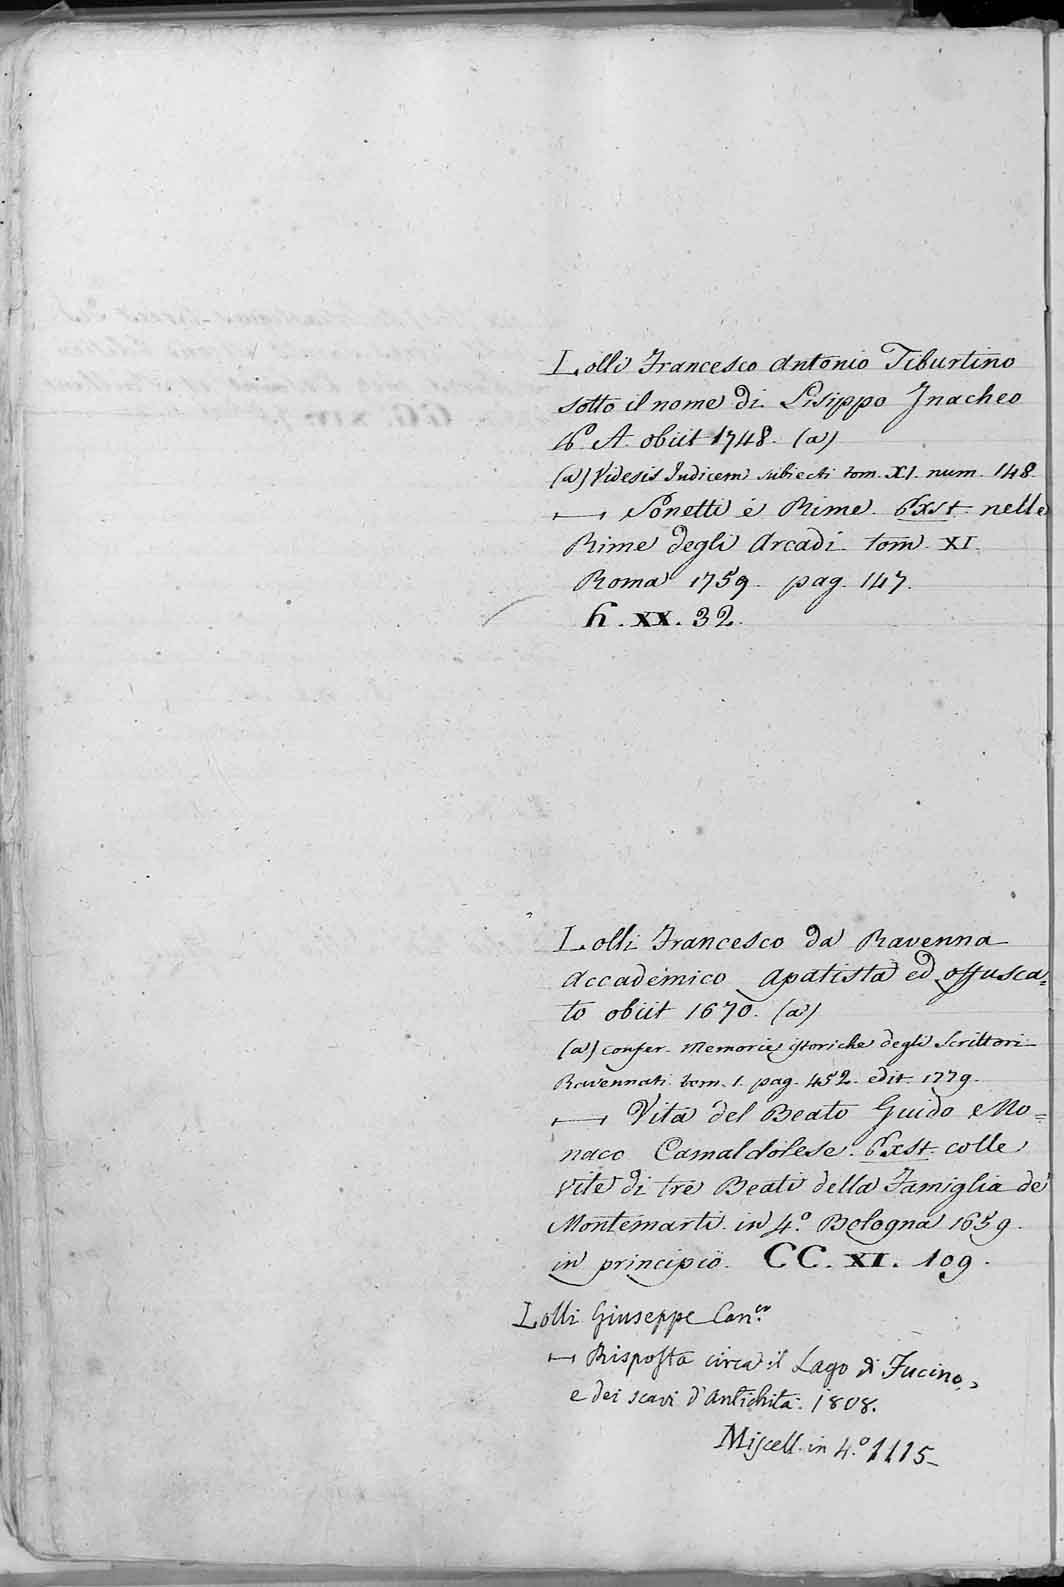 Lolli Francesco Antonio Tiburtino
sotto il nome di Lisippo Inacheo
P. A. obiit 1748. (a)
(a) Videsis Indicem subiecti tom. XI. num. 148
⟼ Sonetti e Rime. Exst. nelle
Rime degli Arcadi tom. XI.
Roma 1759. pag. 147.
h. XX. 32.
Lolli Francesco da Ravenna
Accademico Apatista ed offusca=
to obiit 1670. (a)
(a) confer. Memorie istoriche degli Scrittori
Ravennati tom. 1. pag. 452. edit. 1779.
⟼ Vita del Beato Guido e Mo=
naco Camaldolese. Exst. colle
vite di tre Beati della Famiglia de'
Montemarti. in 4.º Bologna 1659.
in principio. CC. XI. 109.
Lolli Giuseppe Can.co
⟼ Risposta circa il Lago di Fucino,
e dei scavi d'Antichità. 1808.
Miscell. in 4.º 1115